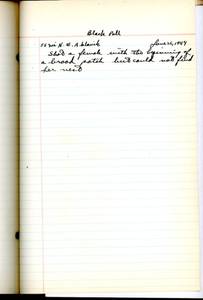 Black Poll
June 16, 1989
Shot a female with the beginning of
a brood patch but could not find
her nest